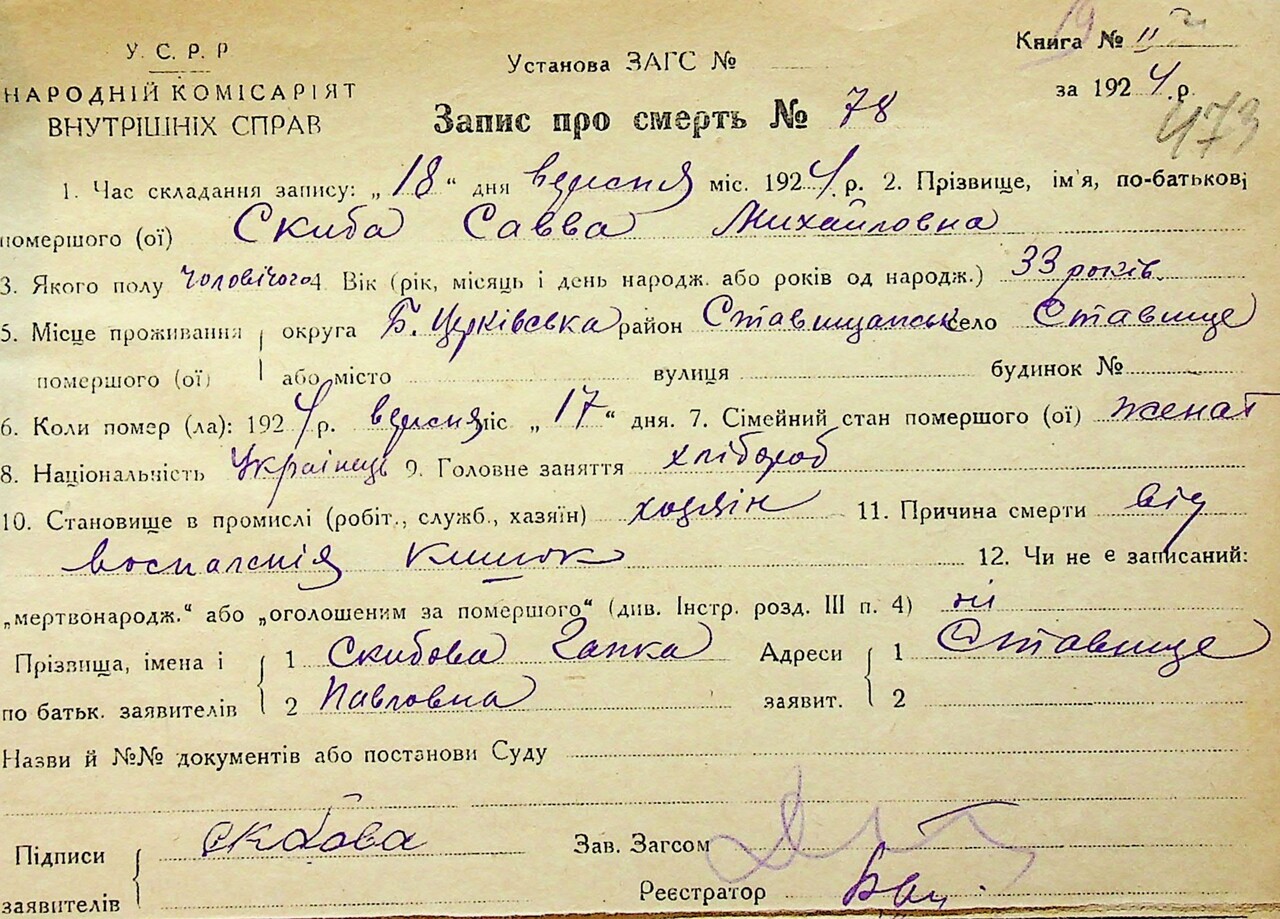 У. С. Р. Р
НАРОДНІЙ КОМІСАРІЯТ
ВНУТРІШНІХ СПРАВ
Установа ЗАГС №
Книга № II
за 1924 р.
473
Запис про смерть № 78
1. Час складання запису: „18" дня вересня міс. 1924 р. 2. Прізвище, ім'я, по-батькові
помершого (ої) Скиба Савва Михайловна
3. Якого полу чоловічого 4 Вік (рік, місяць і день народж. або років од народж.) 33 років
5. Місце проживання округа Б. Церківська район Ставищанськ село Ставище
помершого (ої) або місто вулиця будинок №
6. Коли помер (ла): 1924 р. вересня міс „17" дня. 7. Сімейний стан помершого (ої) женат
8. Національність Українець 9. Головне заняття хлібороб
10. Становище в промислі (робіт., служб., хазяїн) хозяін 11. Причина смерти від
воспаленія кишок 12. Чи не є записаний:
„мертвонародж." або „оголошеним за помершого" (див. Інстр. розд. III п. 4) ні
Прізвища, імена і 1 Скибова Гапка Адреси 1 Ставище
по батьк. заявителів 2 Павловна заявит. 2
Назви й №№ документів або постанови Суду
Підписи Скибова Зав. Загсом
заявителів Реєстратор